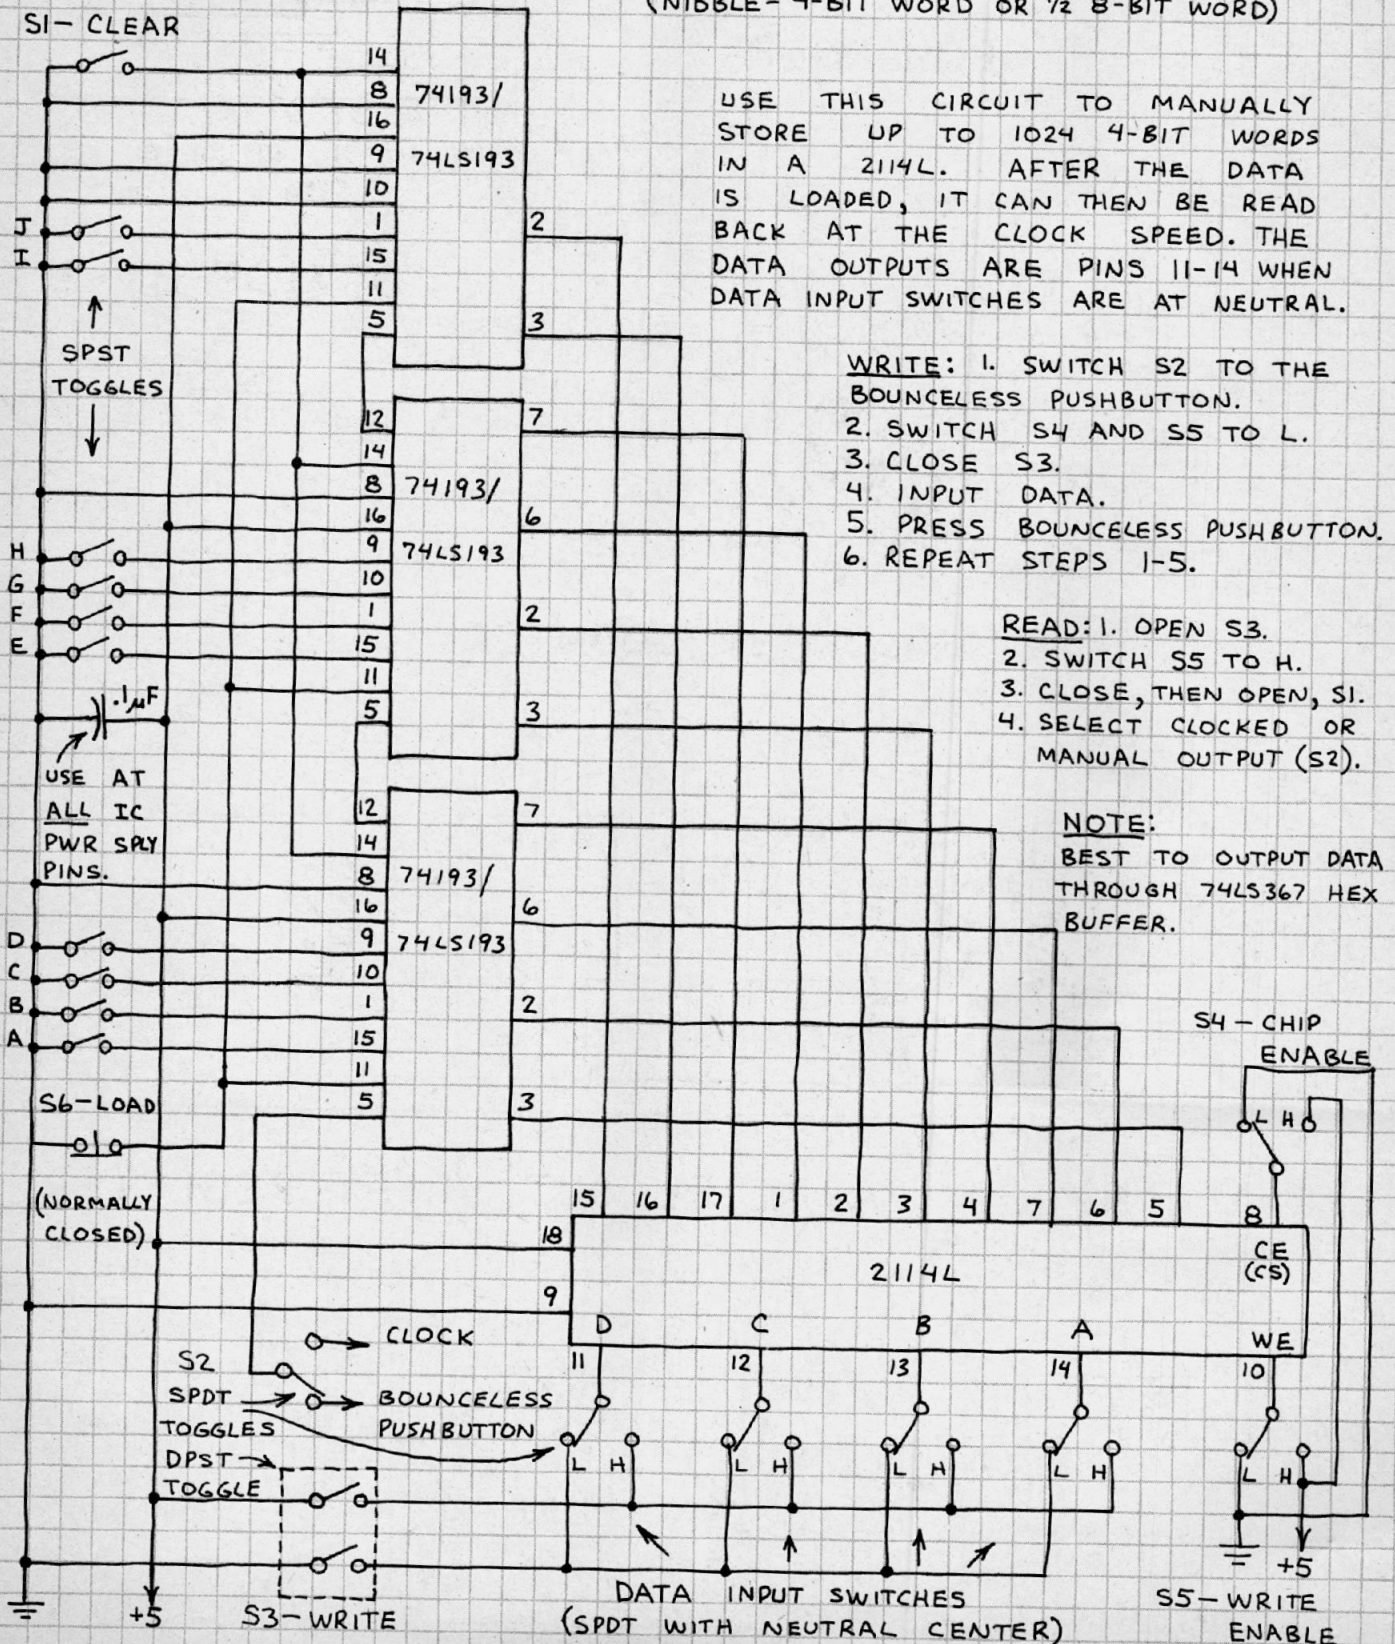 (NIBBLE- 4-BIT WORD OR 1/2 8-BIT WORD)
S1- CLEAR
14
8
16
9
10
1
15
11
5
74193/
74LS193
2
3
J
I
SPST
TOGGLES
USE THIS CIRCUIT TO MANUALLY
STORE UP TO 1024 4-BIT WORDS
IN A 2114L. AFTER THE DATA
IS LOADED, IT CAN THEN BE READ
BACK AT THE CLOCK SPEED. THE
DATA OUTPUTS ARE PINS 11-14 WHEN
DATA INPUT SWITCHES ARE AT NEUTRAL.
WRITE: 1. SWITCH S2 TO THE
BOUNCELESS PUSHBUTTON.
2. SWITCH S4 AND S5 TO L.
3. CLOSE S3.
4. INPUT DATA.
5. PRESS BOUNCELESS PUSHBUTTON.
6. REPEAT STEPS 1-5.
READ: 1. OPEN S3.
2. SWITCH S5 TO H.
3. CLOSE, THEN OPEN, S1.
4. SELECT CLOCKED OR
MANUAL OUTPUT (S2).
NOTE:
BEST TO OUTPUT DATA
THROUGH 74LS367 HEX
BUFFER.
12
14
8
16
9
10
1
15
11
5
74193/
74LS193
7
6
2
3
H
G
F
E
.1µF
USE AT
ALL IC
PWR SPLY
PINS.
12
14
8
16
9
10
1
15
11
5
74193/
74LS193
7
6
2
3
D
C
B
A
S6-LOAD
(NORMALLY
CLOSED)
S4 - CHIP
ENABLE
L H
15 16 17 1 2 3 4 7 6 5 8
18
9
2114L
CE
(CS)
D C B A WE
11 12 13 14 10
CLOCK
S2
SPDT
TOGGLES
BOUNCELESS
PUSHBUTTON
DPST
TOGGLE
L H L H L H L H L H
+5
S3-WRITE
DATA INPUT SWITCHES
(SPDT WITH NEUTRAL CENTER)
+5
S5-WRITE
ENABLE